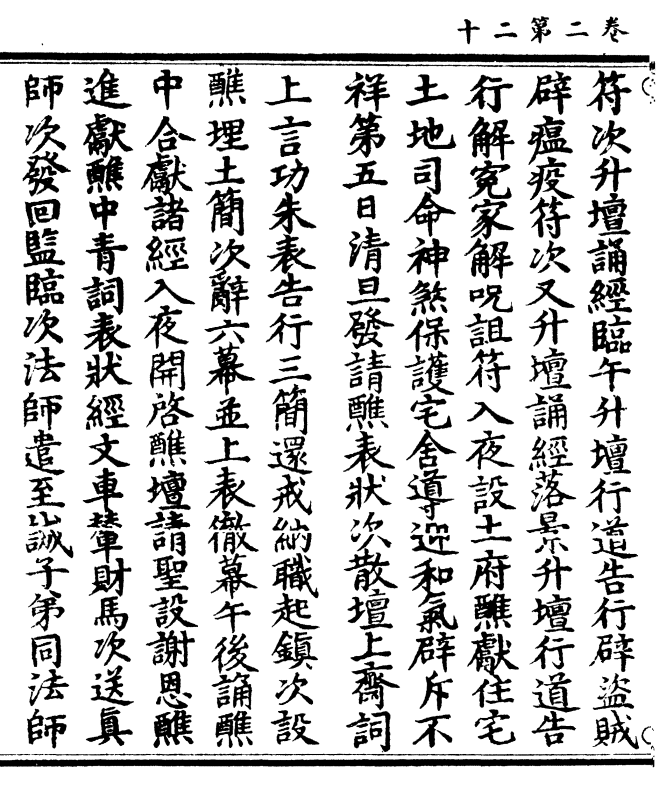 卷二第二十
符次升壇誦經臨午升壇行道告行辟盜賊
辟瘟疫符次又升壇誦經落景升壇行道告
行解寃家解呪詛符入夜設土府醮獻住宅
土地司命神煞保護宅舍導迎和氣辟斥不
祥第五日清旦發請醮表狀次散壇上齋詞
上言功朱表告行三簡還戒納職起鎮次設
醮埋土簡次辭六幕並上表徹幕午後誦醮
中合獻諸經入夜開啓醮壇請聖設謝恩醮
進獻醮中青詞表狀經文車輦財馬次送眞
師次發回監臨次法師遣至誠子弟同法師